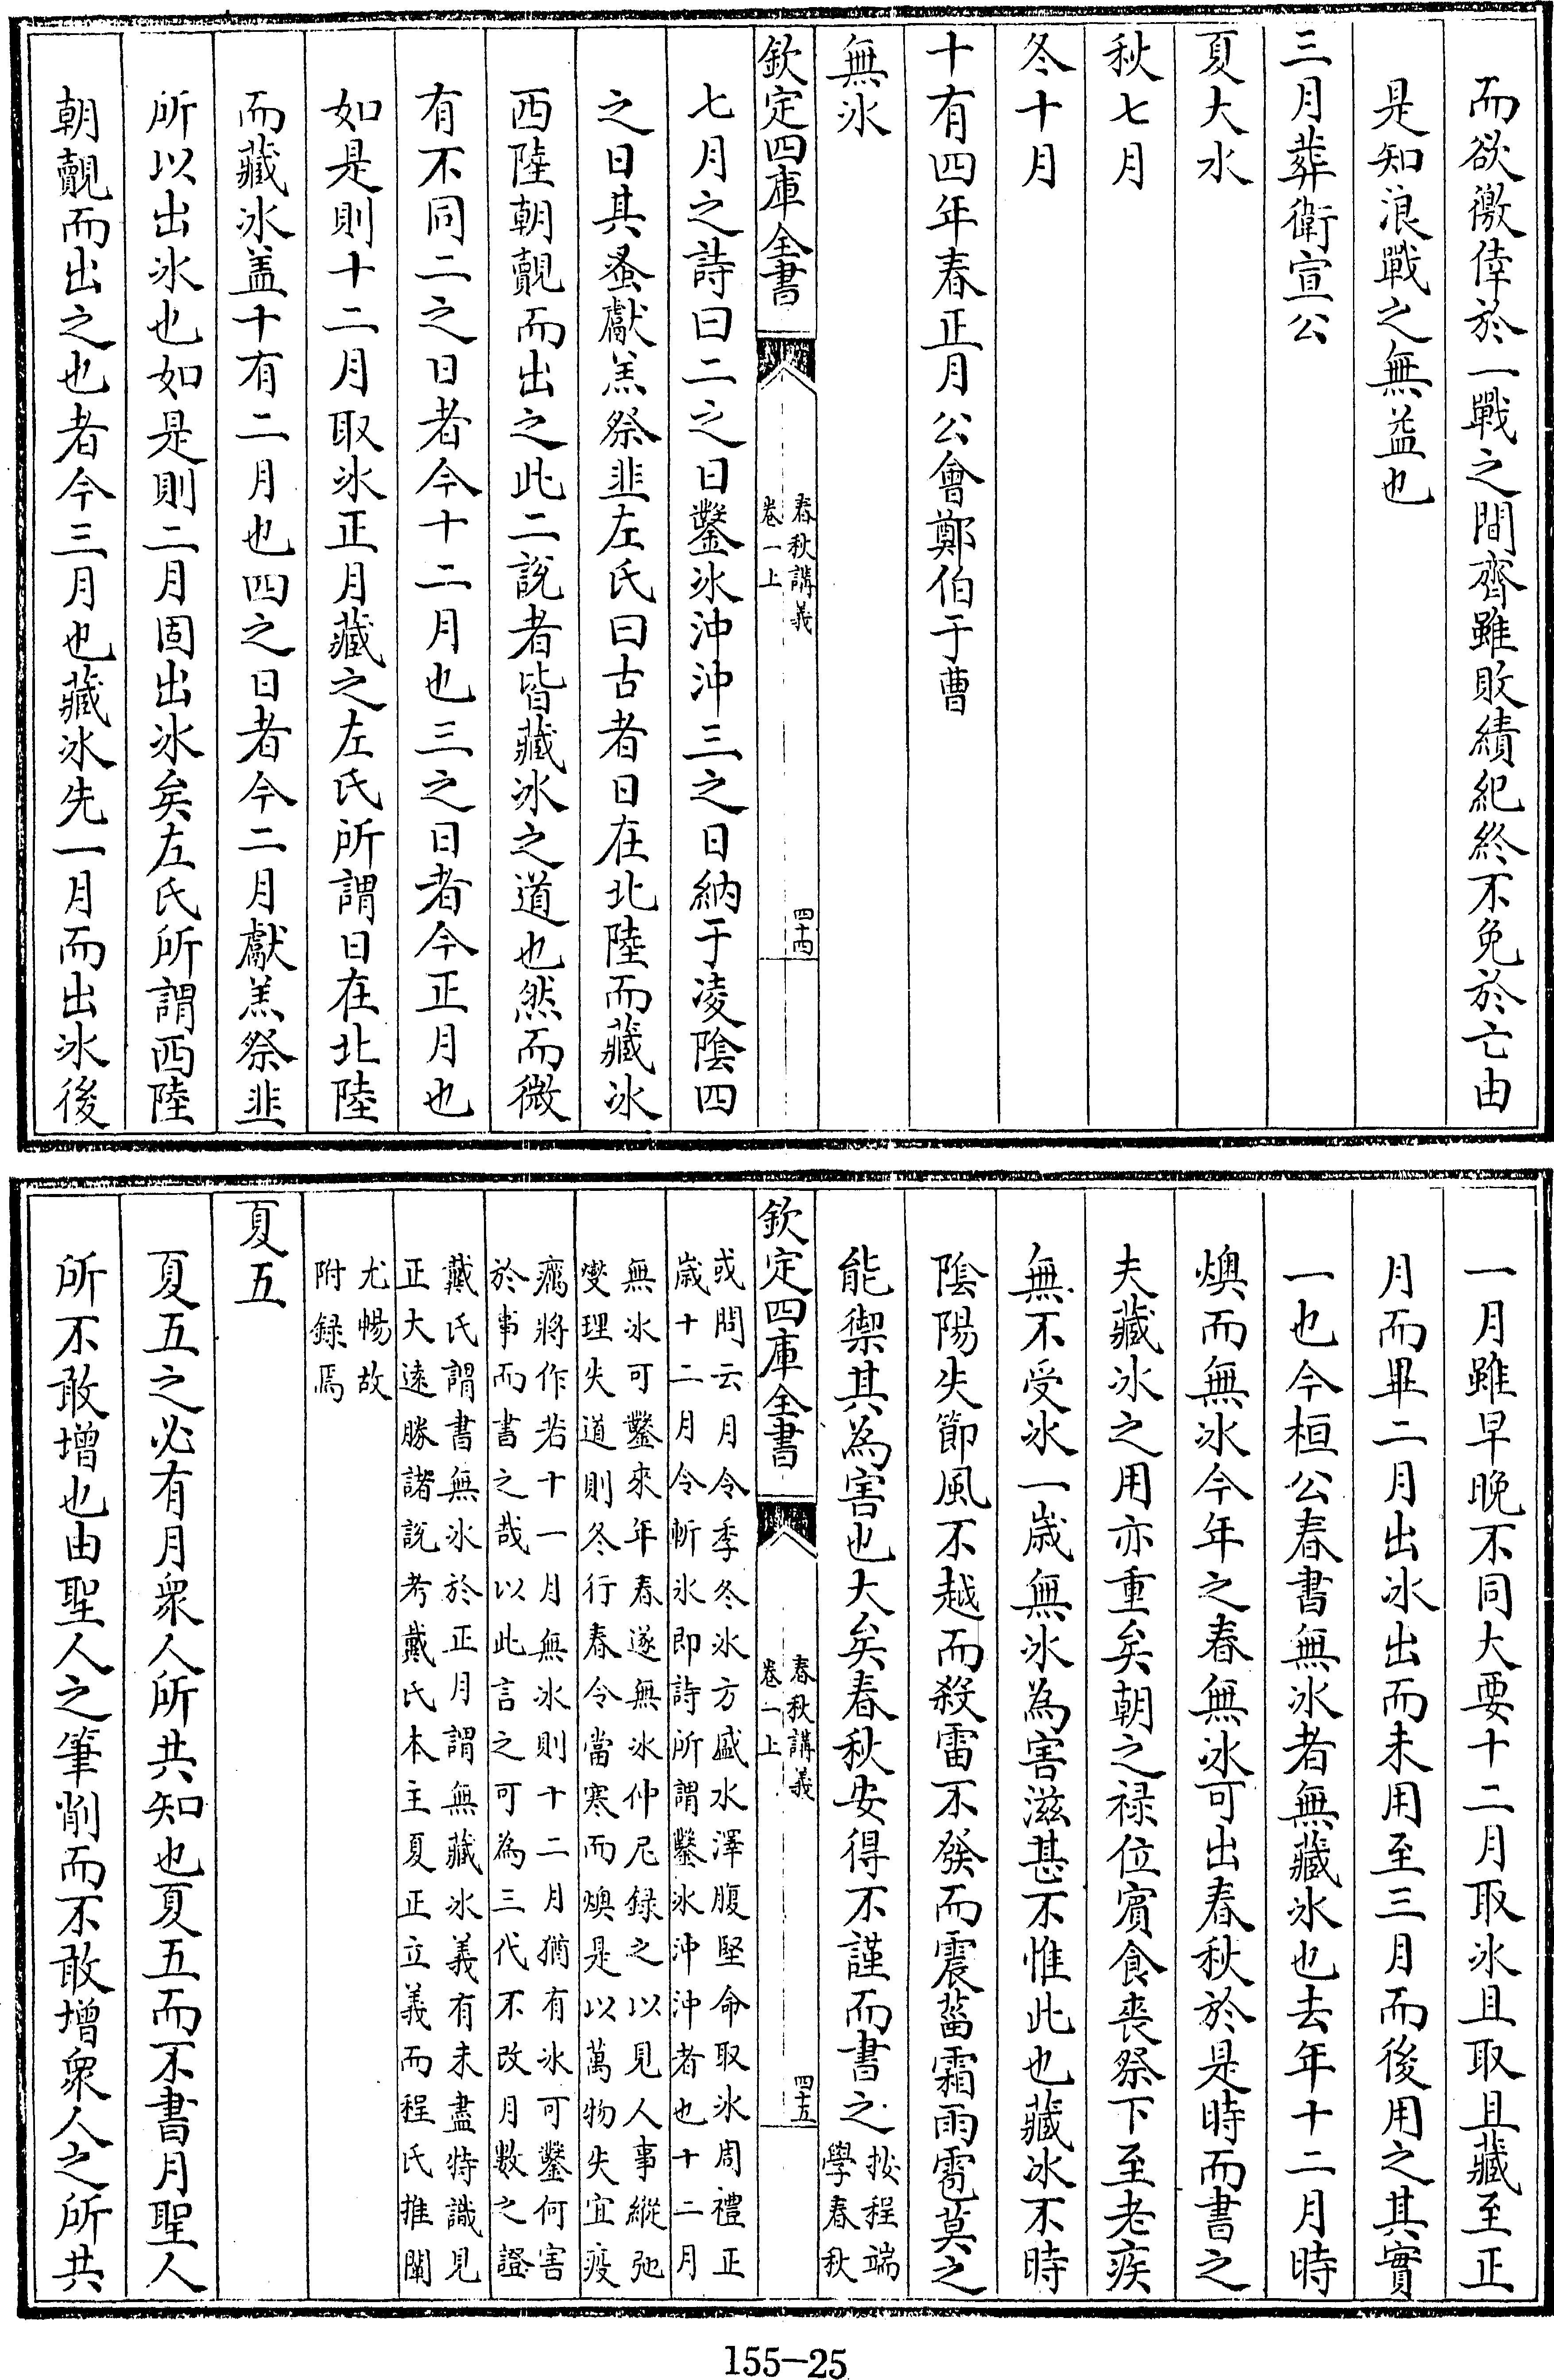 而欲徼倖於一戰之間齊雖敗績紀終不免於亡由
是知浪戰之無益也
三月葬衛宣公
夏大水
秋七月
冬十月
十有四年春正月公會鄭伯于曹
無冰
欽定四庫全書
春秋講義
卷一上
四十四
七月之詩曰二之日鑿冰沖沖三之日納于凌隂四
之日其蚤獻羔祭韭左氏曰古者日在北陸而藏冰
西陸朝覿而出之此二說者皆藏冰之道也然而微
有不同二之日者今十二月也三之日者今正月也
如是則十二月取冰正月藏之左氏所謂日在北陸
而藏冰盖十有二月也四之日者今二月獻羔祭韭
所以出冰也如是則二月固出冰矣左氏所謂西陸
朝覿而出之也者今三月也藏冰先一月而出冰後
一月雖早晚不同大要十二月取冰且取且藏至正
月而畢二月出冰出而未用至三月而後用之其實
一也今桓公春書無冰者無藏冰也去年十二月時
燠而無冰今年之春無冰可出春秋於是時而書之
夫藏冰之用亦重矣朝之禄位賓食喪祭下至老疾
無不受冰一歲無冰為害滋甚不惟此也藏冰不時
隂陽失節風不越而殺雷不發而震菑霜雨雹莫之
能禦其為害也大矣春秋安得不謹而書之按程端
學春秋
欽定四庫全書
春秋講義
卷一上
四十五
或問云月令季冬冰方盛水澤腹堅命取冰周禮正
歲十二月令斬冰即詩所謂鑿冰沖沖者也十二月
無冰可鑿來年春遂無冰仲尼録之以見人事縱弛
燮理失道則冬行春令當寒而燠是以萬物失宜疫
癘將作若十一月無冰則十二月猶有冰可鑿何害
於事而書之哉以此言之可為三代不改月數之證
戴氏謂書無冰於正月謂無藏冰義有未盡特識見
正大遠勝諸說考戴氏本主夏正立義而程氏推闡
尤暢故
附録焉
夏五
夏五之必有月衆人所共知也夏五而不書月聖人
所不敢增也由聖人之筆削而不敢增衆人之所共
155-25